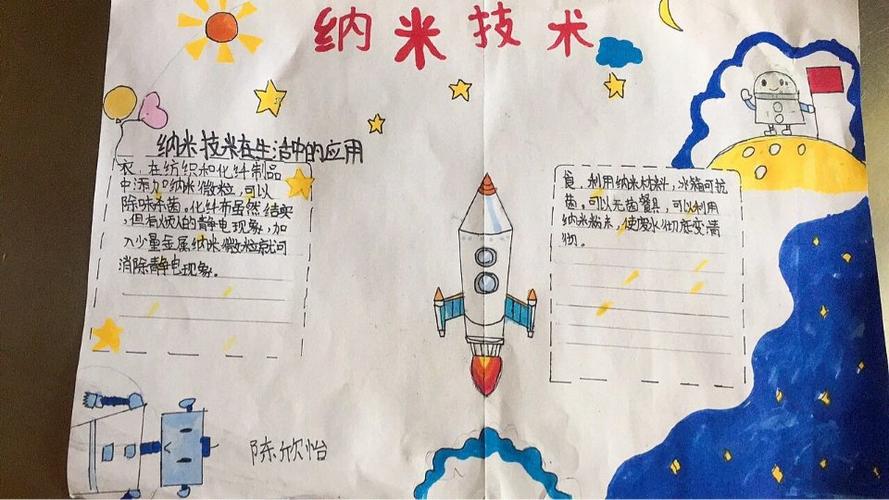 纳米技术
纳米技米在生活中的应用
衣，在纺织和化纤制品
中添加纳米微粒，可以
除味杀菌。化纤布虽然结实，
但有烦人的静电现象，加
入少量金属纳米微粒就可
消除静电现象。
食，利用纳米材料，冰箱可抗
菌。可以无菌餐具，可以利用
纳米粉末，使废水彻底变清
彻。
陈欣怡